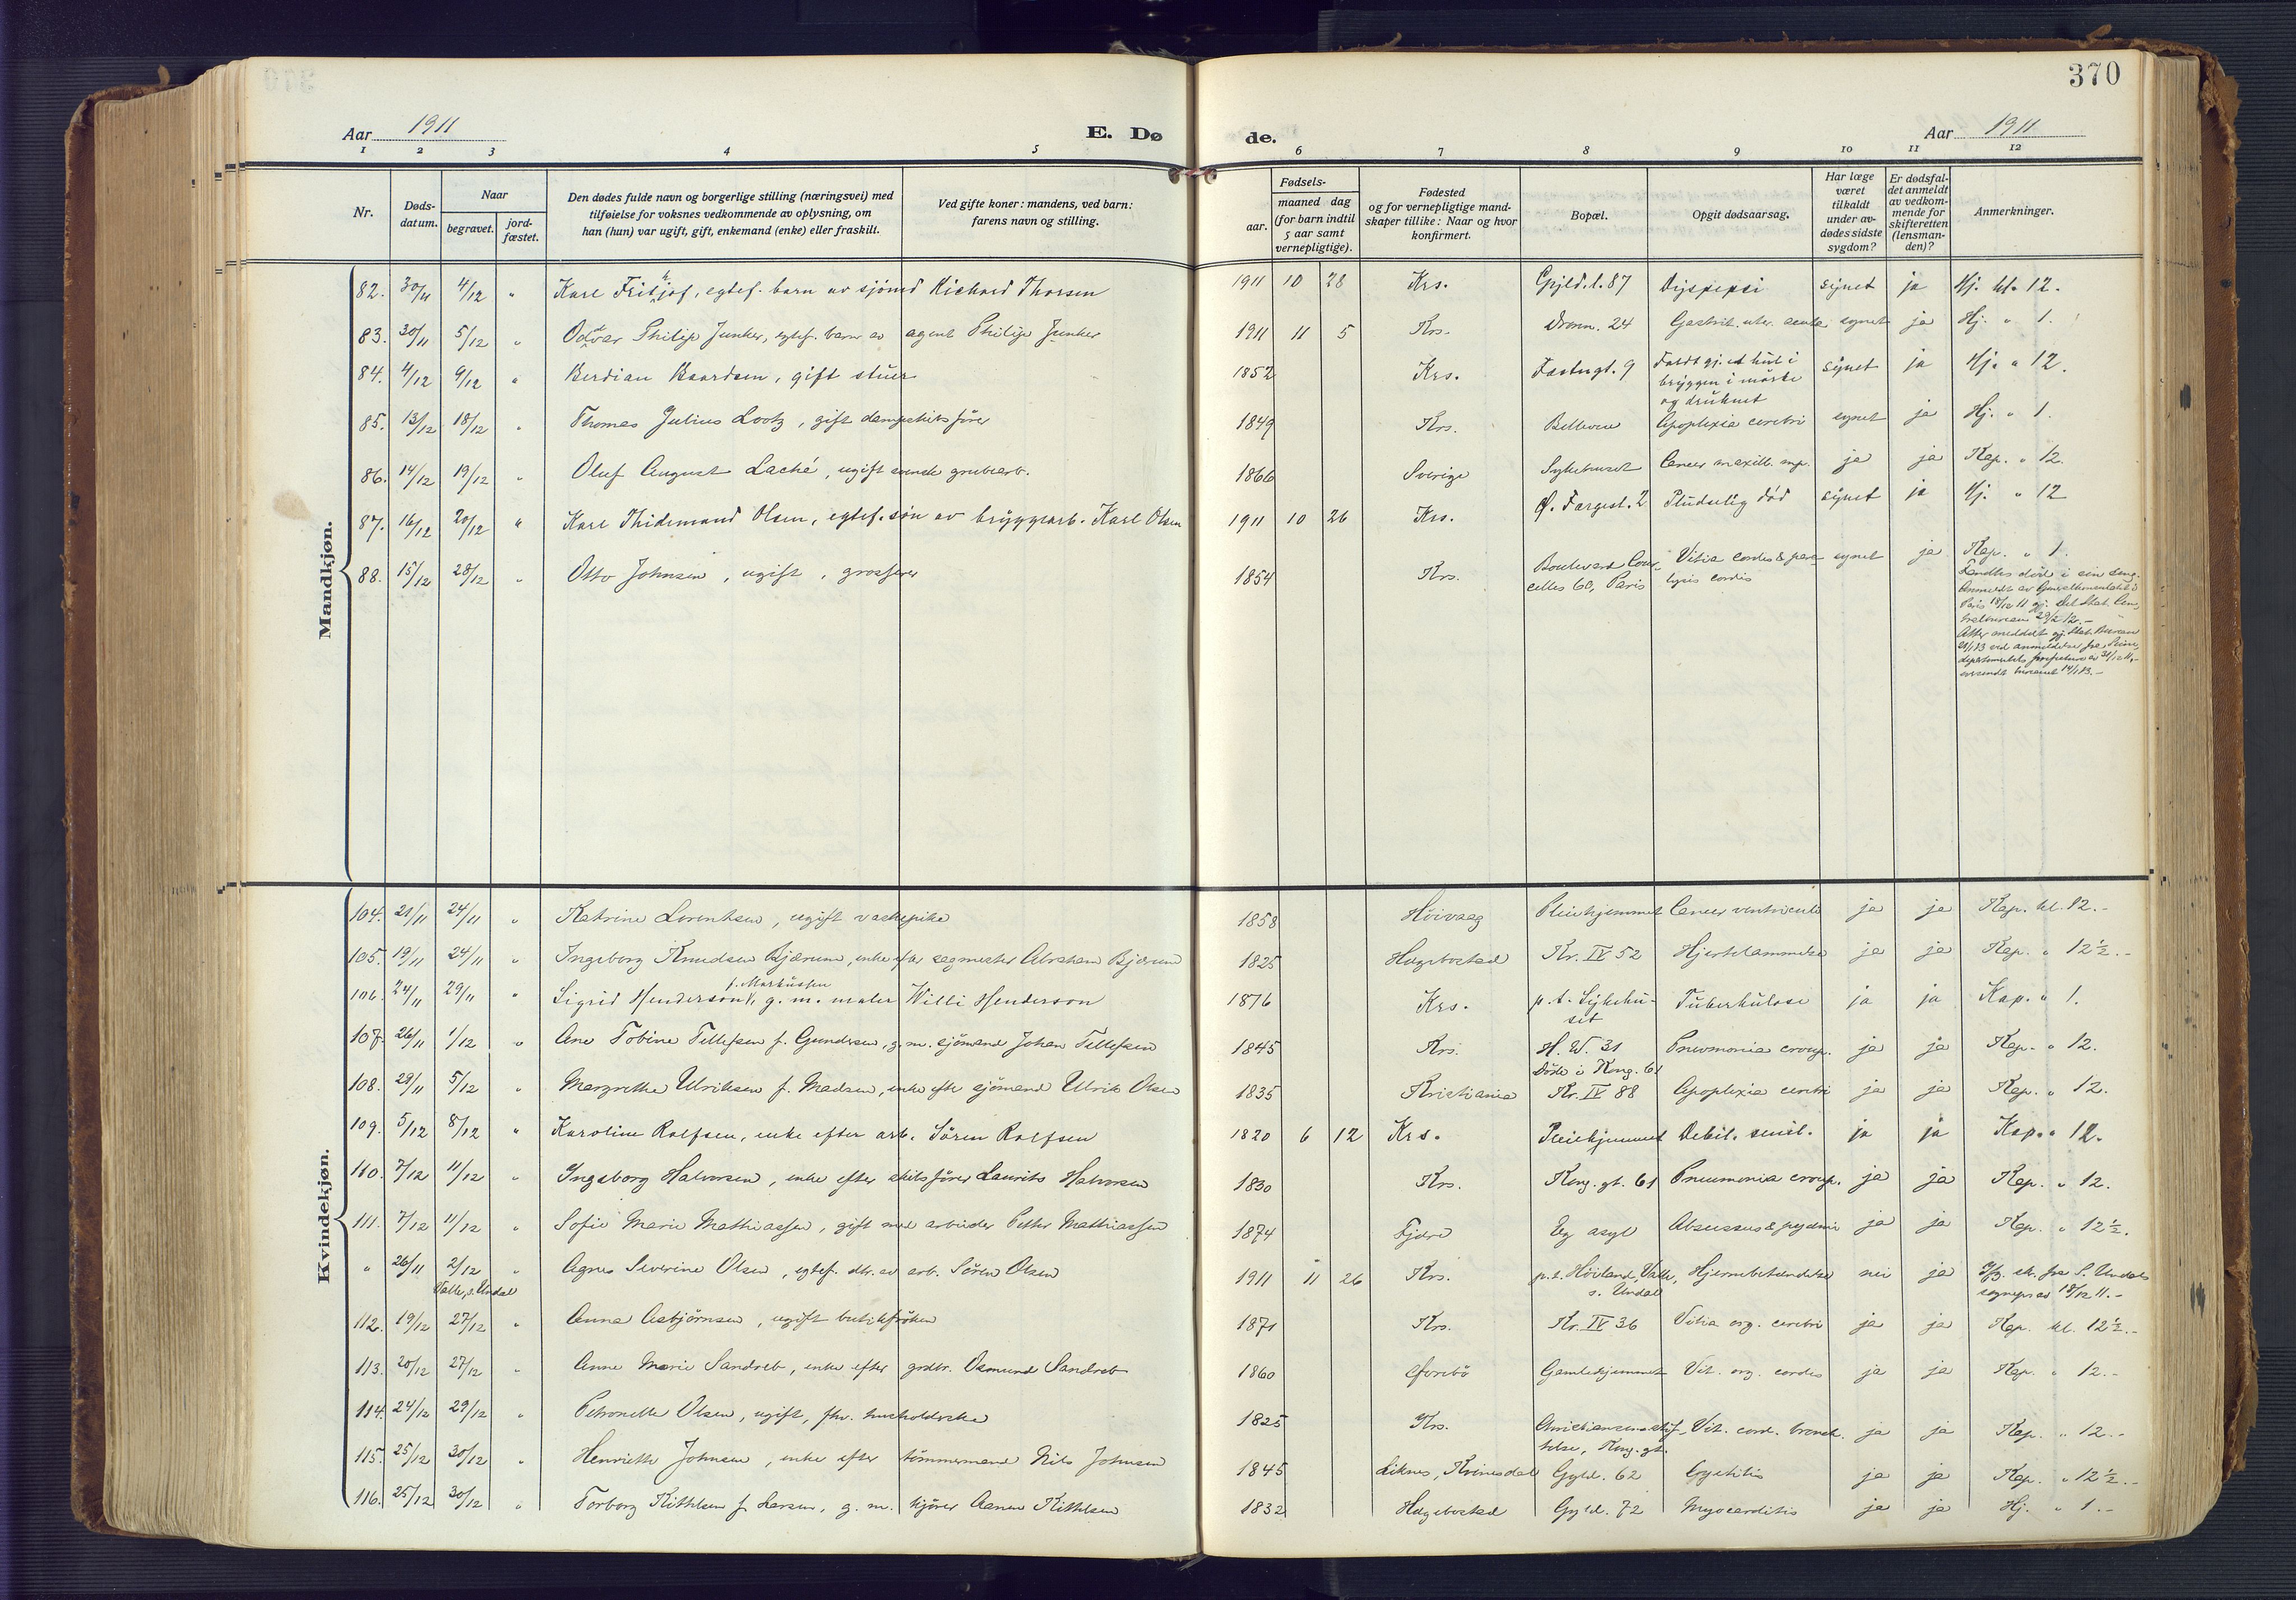 370
Aar 1911 E. Dø de. Aar 1911
1 2 3 4 5 6 7 8 9 10 11 12
Nr. Døds-datum. Naar begravet. jord-fæstet. Den dødes fulde navn og borgerlige stilling (næringsvei) med tilføielse for voksnes vedkommende av oplysning, om han (hun) var ugift, gift, enkemand (enke) eller fraskilt. Ved gifte koner: mandens, ved barn: farens navn og stilling. Fødsels- aar. maaned dag (for barn indtil 5 aar samt vernepligtige). Fødested og for vernepligtige mandskaper tillike: Naar og hvor konfirmert. Bopæl. Opgit dødsaarsag. Har læge været tilkaldt under avdødes sidste sygdom? Er dødsfaldet anmeldt av vedkommende for skifteretten (lensmanden)? Anmerkninger.
Mandkjøn.
82. 30/11 4/12 " Karl Fritjof, egtef. barn av sjömd Richard Thorsen 1911 10 28 Krs. Gyld.l. 87 Dyspepsi synet ja Hj. kl. 12.
83. 30/11 5/12 " Oddvar Philip Junker, egtef. barn av agent Philip Junker 1911 11 5 Krs. Dronn. 24 Gastrit. acuta synet ja Hj. " 1.
84. 4/12 9/12 " Berdian Baardsen, gift stuer 1852 Krs. Fæstngt. 9 Faldt gj. et hul i
bryggen i mörke
og druknet synet ja Hj. " 12.
85. 13/12 18/12 " Thomas Julius Lootz, gift dampskibsfører 1849 Krs. Bellevue Apoplexia cerebri synet ja Hj. " 1.
86. 14/12 19/12 " Oluf August Laché, ugift svensk grubearb. 1866 Sverige Sykehuset Cancer maxill. sup. ja ja Kap. " 12.
87. 16/12 20/12 " Karl Thidemand Olsen, egtef. søn av bryggearb. Karl Olsen 1911 10 26 Krs. Ø. Fargest. 2 Pludselig död synet ja Hj. " 12
88. 15/12 28/12 " Otto Johnsen, ugift, grosserer 1854 Krs. Boulevard Cour-
celles 60, Paris Vitia cordis & para-
lysis cordis synet ja Kap. " 1.
Fandtes död i sin seng.
Anmeldt av Generalkonsulatet i
Paris 18/12 11 gj. det Stat. Cen-
tralbureau 29/2 12.-
Kvindekjøn.
104. 21/11 24/11 " Katrine Lorentsen, ugift vaskepike 1858 Höivaag Pleiehjemmet Cancer ventriculi ja ja Kap. kl. 12.-
105. 19/11 24/11 " Ingeborg Knudsen Bjærum, enke efter sagmester Abraham Bjærum 1825 Hægebostad Kr. IV 52 Hjertelammelse ja ja Kap. " 12½.-
106. 24/11 29/11 " Sigrid Henderson f. Markussen, g. m. maler Willi Henderson 1876 Krs. p.t. Sykehu-
set Tuberkulose ja ja Kap. " 1.
107. 26/11 1/12 " Ane Tobine Tellefsen f. Gundersen, g. m. sjömand Johan Tellefsen 1845 Krs. H. W. 31
Døde i Kong. 61 Pneumonia croup. ja ja Kap. " 12.
108. 29/11 5/12 " Margrethe Ulriksen f. Madsen, enke efter sjömand Ulrik Olsen 1835 Kristiania Kr. IV 88 Apoplexia cerebri ja ja Kap. " 12.
109. 5/12 8/12 " Karoline Rolfsen, enke efter arb. Sören Rolfsen 1820 6 12 Krs. Pleiehjemmet Debil. senil. ja ja Kap. " 12.
110. 7/12 11/12 " Ingeborg Halvorsen, enke efter skibsfører Laurits Halvorsen 1830 Krs. Kong. gt. 61 Pneumonia croup. ja ja Kap. " 12.
111. 7/12 11/12 " Sofie Marie Mathiassen, gift med arbeider Petter Mathiassen 1874 Fjære Eg asyl Abscessus & pyæmi ja ja Kap. " 12½.
" 26/11 2/12 " Agnes Severine Olsen, egtef. dtr. av arb. Sören Olsen 1911 11 26 Krs. p.t. Höiland, Valle,
s. Undal Hjernebetændelse nei ja fra S. Undals
sogneprest 18/12 11.-
Valle, s. Undal
112. 19/12 27/12 " Anna Asbjørnsen, ugift butikfrøken 1871 Krs. Kr. IV 36 Vitia org. cerebri ja ja Kap. kl. 12½.-
113. 20/12 27/12 " Anne Marie Sandreb, enke efter grdbr. Osmund Sandreb 1860 Gamlehjemmet Vit. org. cordis ja ja Kap. " 12.-
114. 24/12 29/12 " Petronelle Olsen, ugift, fhv. husholderske 1825 Krs. Christiansens stif-
telse, Kong. gt. Vit. cord. bronch. ja ja Kap. " 12.-
115. 25/12 30/12 " Henriette Johnsen, enke efter tømmermand Nils Johnsen 1845 Liknes, Kvinesdal Gyld. 62 Cystitis ja ja Kap. " 12½.-
116. 25/12 30/12 " Torborg Kittelsen f. Larsen, g. m. kjører Aanen Kittelsen 1832 Hægebostad Gyld. 72 Myocarditis ja ja Hj. " 1.-